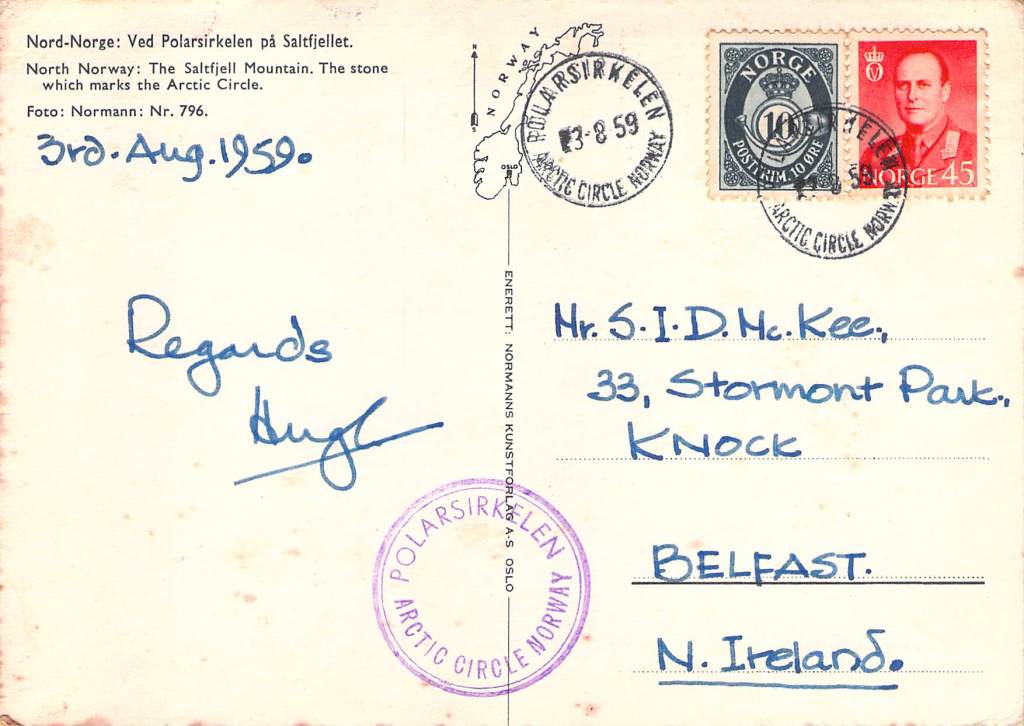 Nord-Norge: Ved Polarsirkelen på Saltfjellet.
North Norway: The Saltfjell Mountain. The stone
which marks the Arctic Circle.
Foto: Normann: Nr. 796.
3rd. Aug. 1959.
Regards
Hugh
N
NORWAY
OSLO
POLARSIRKELEN
3-8 59
ARCTIC CIRCLE NORWAY
NORGE
10
POSTFRIM. 10 ØRE
NORGE 45
59
ARCTIC CIRCLE NORWAY
ENERETT: NORMANNS KUNSTFORLAG A-S OSLO
Mr. S. I. D. Mc. Kee.,
33, Stormont Park.,
KNOCK
BELFAST.
N. Ireland.
POLARSIRKELEN
ARCTIC CIRCLE NORWAY